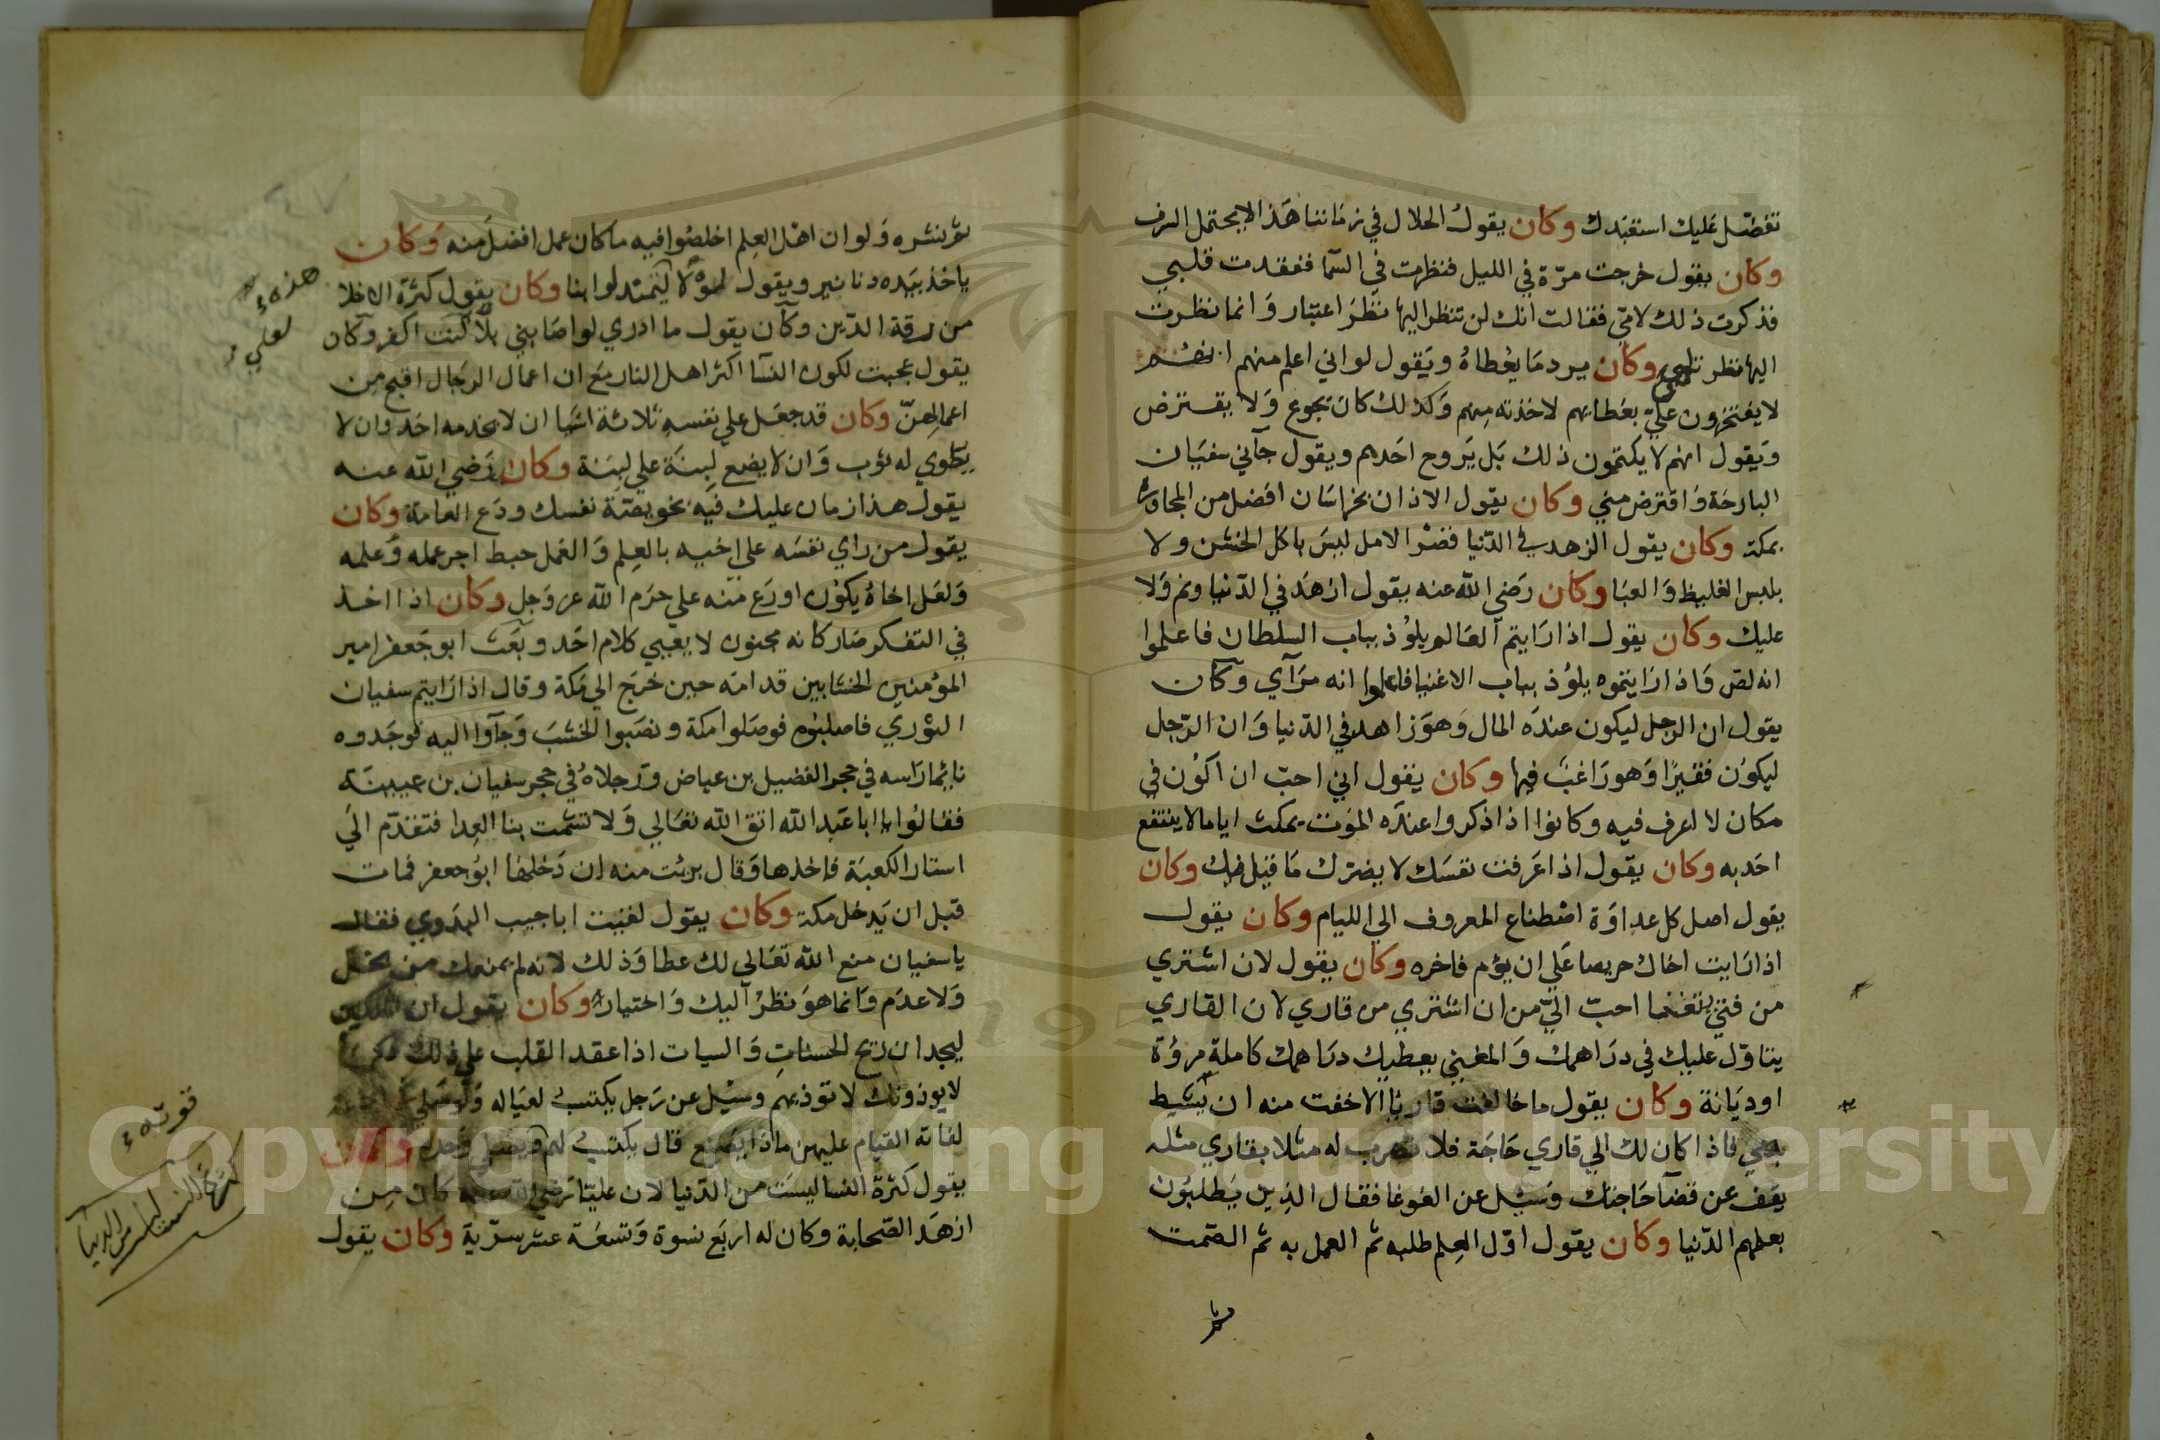 تفضل عليك استعبدك وكان يقول الحلال في زماننا هذا لا يحتمل السرف
وكان يقول خرجت مرة في الليل فنظرت في السما ففقدت قلبي
فذكرت ذلك لامي فقالت انك لن تنظر اليها نظر اعتبار وانما نظرت
اليها نظر وكان يرد ما يعطاه ويقول لو اني اعلم منهم انهم
لا يفتخرون علي بعطايهم لاخذته منهم وكذلك كان يجوع ولا يقترض
ويقول انهم لا يكتمون ذلك بل يروح احدهم ويقول جآني سفيان
البارحة واقترض مني وكان يقول الاذان بخراسان افضل من المجاورة
بمكة وكان يقول الزهد في الدنيا قصر الامل ليس باكل الخشن ولا
بلبس الغليظ والعبا وكان رضي الله عنه يقول ازهد في الدنيا ونم ولا
عليك وكان يقول اذا رايتم العالم يلوذ بباب السلطان فاعلموا
انه لص واذا رايتموه يلوذ بباب الاغنيا فاعلموا انه مرآي وكان
يقول ان الرجل ليكون عنده المال وهو زاهد في الدنيا وان الرجل
ليكون فقيرا وهو راغب فيها وكان يقول اني احب ان اكون في
مكان لا اعرف فيه وكانوا اذا ذكروا عنده الموت يمكث اياما لا ينتفع
احد به وكان يقول اذا عرفت نفسك لا يضرك ما قيل فيك وكان
يقول اصل كل عداوة اصطناع المعروف الي الليام وكان يقول
اذا رايت اخاك حريصا علي ان يؤم فاخره وكان يقول لان اشتري
من فتي يتغنا احب الي من ان اشتري من قاري لان القاري
يتاول عليك في دراهمك والمغني يعطيك دراهمك كاملة مروة
او ديانة وكان يقول ما خالفت قاريا الا خفت منه ان يشيط
بدمي فاذا كان لك الي قاري حاجة فلا تضرب له مثلا بقاري مثله
يقف عن قضآ حاجتك وسيل عن الغوغا فقال الذين يطلبون
بعلمهم الدنيا وكان يقول اول العلم طلبه ثم العمل به ثم الصمت
ثم ينشره ولو ان اهل العلم اخلصوا فيه ما كان عمل افضل منه وكان
ياخذ بيده دنانير ويقول لولا هذه لتمندلوا بنا وكان يقول كثرة الاخلا
من رقة الدين وكان يقول ما ادري لو اصابني بلا كنت اكفر وكان
يقول عجبت لكون النسآ اكثر اهل النار مع ان اعمال الرجال اقبح من
اعمالهن وكان قد جعل علي نفسه ثلاثة اشيا ان لا يخدمه احد وان لا
يطوي له ثوب وان لا يضع لبنة علي لبنة وكان رضي الله عنه
يقول هذا زمان عليك فيه بخويصة نفسك ودع العامة وكان
يقول من راي نفسه علي اخيه بالعلم والعمل حبط اجر عمله وعلمه
ولعل اخاه يكون اورع منه علي حرم الله عز وجل وكان اذا اخذ
في التفكر صار كانه مجنون لا يعي كلام احد وبعث ابو جعفر امير
المؤمنين الخشابين قدامه حين خرج الي مكة وقال اذا رايتم سفيان
الثوري فاصلبوه فوصلوا مكة ونصبوا الخشب وجآوا اليه فوجدوه
نايما راسه في حجر الفضيل بن عياض ورجلاه في حجر سفيان بن عيينة
فقالوا يا ابا عبد الله اتق الله تعالي ولا تشمت بنا العدا فتقدم الي
استار الكعبة فاخذها وقال برئت منه ان دخلها ابو جعفر فمات
قبل ان يدخل مكة وكان يقول لقيت ابا حبيب البدوي فقال
يا سفيان منع الله تعالي لك عطا وذلك لانه لم يمنعك من بخل
ولا عدم وانما هو نظر اليك واختيارا وكان يقول ان الملكين
ليجدان ريح الحسنات والسيات اذا عقد القلب علي ذلك
لا يوذونك لا توذيهم وسيل عن رجل يكتسب لعياله
لفاته القيام عليهن ماذا يصنع قال يكتسب لهم ويصلي وحده وكان
يقول كثرة النسا ليست من الدنيا لان عليا رضي الله عنه كان من
ازهد الصحابة وكان له اربع نسوة وتسعة عشر سرية وكان يقول
هذه
لعلي
قوته
كثرة النسا ليست من الدنيا
Copyright © King Saud University
1957